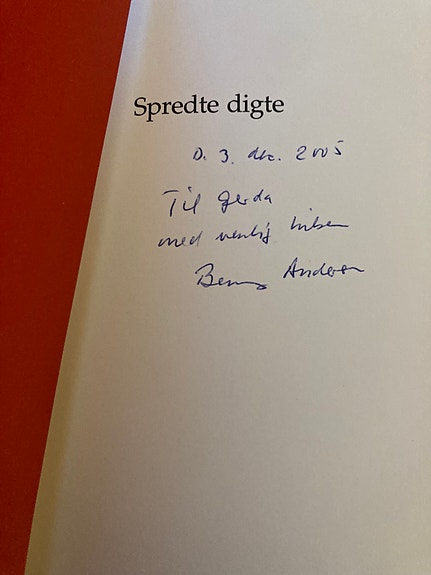 Spredte digte
D. 3. dec. 2005
Til Gerda
med venlig hilsen
Benny Andersen